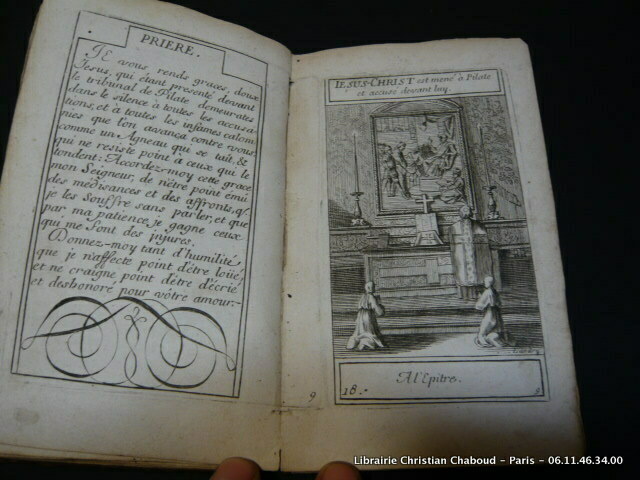 PRIERE.
JE vous rends graces, doux
Jesus, qui étant presenté devant
le tribunal de Pilate demeurates
dans le silence à toutes les accusa-
tions, et à toutes les infames calom-
nies que l'on avança contre vous
comme un Agneau qui se tait, &
qui ne resiste point à ceux qui le
tondent: Accordez-moy cette grace
mon Seigneur, de n'être point émû
des médisances et des affronts, q̃
je les Souffre sans parler, et que
par ma patience, je gagne ceux
qui me font des injures.
Donnez-moy tant d'humilité,
que je n'affecte point d'être loüé,
et ne craigne point d'être décrié
et deshonoré pour vôtre amour.-
9
IESUS-CHRIST est mené à Pilate
et accusé devant luy.
A l'Epitre.
18.-
Librairie Christian Chaboud - Paris - 06.11.46.34.00